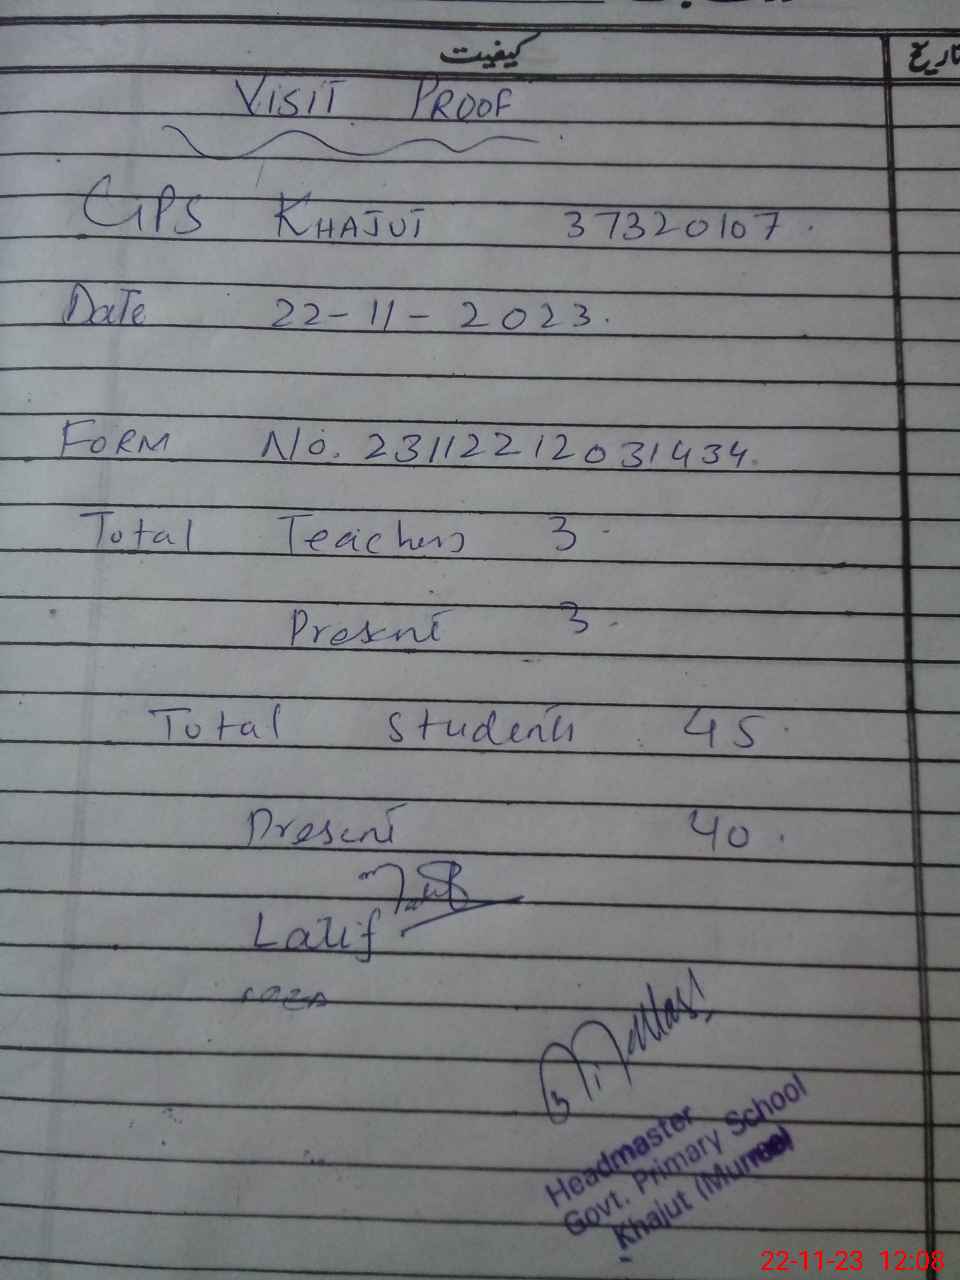 کیفیت
تاریخ
VISIT PROOF
GPS KHAJUT 37320107.
Date 22-11-2023.
FORM No. 23112212031434.
Total Teachers 3.
Present 3.
Total Students 45.
Present 40.
Latif
Headmaster
Govt. Primary School
Khajut
22-11-23 12:08